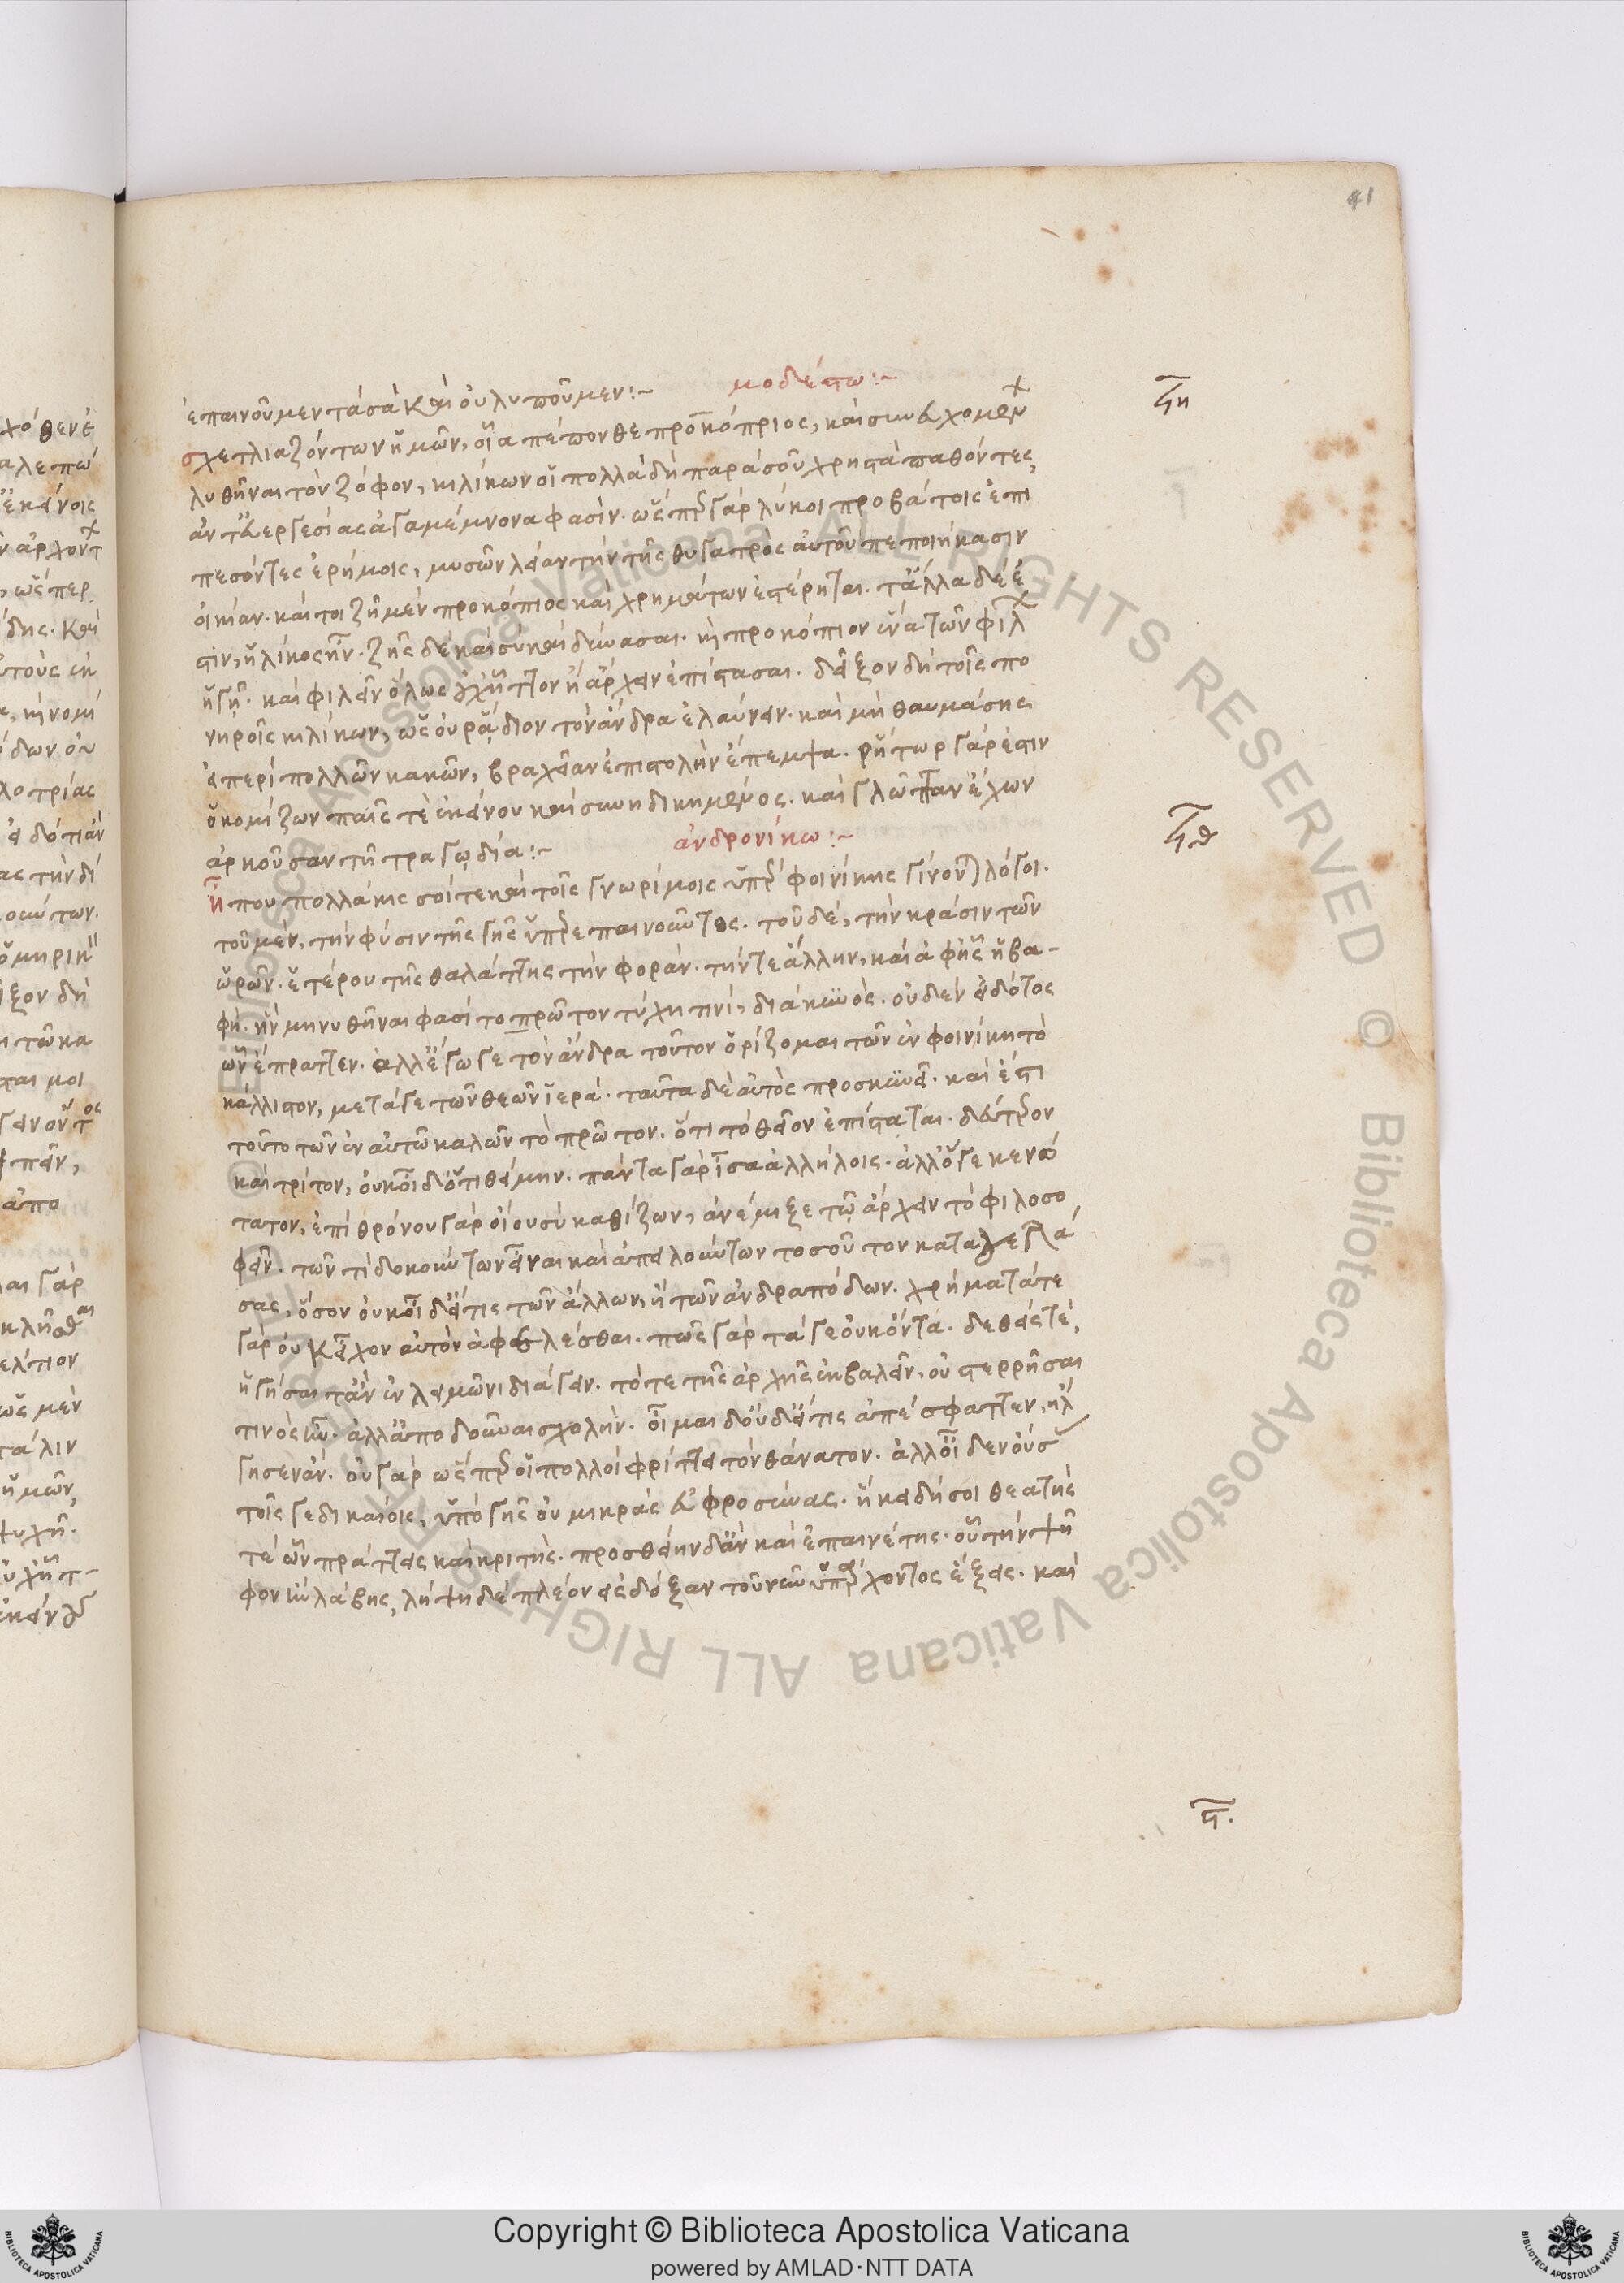 41
ἐπαινοῦμεν τὰ σὰ καὶ οὐ λυποῦμεν:~ μοδέστω:~
ϟη
σχετλιαζόντων ἡμῶν, οἷα πέπονθε προκόπιος, καὶ συνευχομένων
λυθῆναι τὸν ζόφον, κιλίκων οἱ πολλὰ δὴ παρὰ σοῦ χρηστὰ παθόντες,
ἀντ' εὐεργεσίας ἀγαμέμνονα φασίν. ὥσπερ γὰρ λύκοι προβάτοις ἐπι
πεσόντες ἐρήμοις, μυσῶν λείαν τὴν τῆς θυγατρὸς αὐτοῦ πεποιήκασιν
οἰκίαν. καίτοι ζῇ μὲν προκόπιος καὶ χρημάτων ἐστέρηται. τἄλλα δέ ἐ
στιν, ἡλίκος ἦν. ζῇς δὲ καὶ σὺ καὶ δεδύνησαι. καὶ προκόπιον ἕνα τῶν φίλων
ἡγῇ. καὶ φιλεῖν ὅλως οὐχ ἧττον ἢ ἄρχειν ἐπίστασαι. δεῖξον δὴ τοῖς πο
νηροῖς κιλίκων, ὡς οὐ ῥᾴδιον τὸν ἄνδρα ἐλαύνειν. καὶ μὴ θαυμάσῃς
εἰ περὶ πολλῶν κακῶν, βραχεῖαν ἐπιστολὴν ἔπεμψα. ῥήτωρ γάρ ἐστιν
ὁ κομίζων παῖς τε ἐκείνου καὶ συνηδικημένος. καὶ γλῶτταν ἔχων
ἀρκοῦσαν τῇ τραγῳδίᾳ:~ ἀνδρονίκω:~
ϟθ
ἦ που πολλάκις σοί τε καὶ τοῖς γνωρίμοις ὑπὲρ φοινίκης γίνονται λόγοι.
τοῦ μὲν, τὴν φύσιν τῆς γῆς ὑπερεπαινοῦντος. τοῦ δὲ, τὴν κράσιν τῶν
ὡρῶν. ἑτέρου τῆς θαλάττης τὴν φοράν. τήν τε ἄλλην, καὶ ἀφ' ἧς ἡ βα-
φή. ἣν μηνυθῆναι φασὶ το πρῶτον τύχῃ τινί, διὰ κυνὸς. οὐδὲν εἰδότος
ὧν ἔπραττεν. ἀλλ' ἔγωγε τὸν ἄνδρα τοῦτον ὁρίζομαι τῶν ἐν φοινίκῃ τὸ
κάλλιστον, μετά γε τῶν θεῶν ἱερά. ταῦτα δὲ αὐτὸς προσκυνεῖ. καὶ ἔστι
τοῦτο τῶν ἐν αὐτῷ καλῶν τὸ πρῶτον. ὅτι τὸ θεῖον ἐπίσταται. δεύτερον
καὶ τρίτον, οὐκ οἶδ' ὅ τι θείμην. πάντα γὰρ ἴσα ἀλλήλοις. ἀλλ' ὅ γε καινό
τατον, ἐπὶ θρόνου γὰρ οἵου σὺ καθίζων, ἀνέμιξε τῷ ἄρχειν τὸ φιλοσο
φεῖν. τῶν τὶ δοκούντων εἶναι καὶ ἀπειλούντων τοσοῦτον καταγελά
σας, ὅσον οὐκ οἶδ' εἴ τις τῶν ἄλλων, ἢ τῶν ἀνδραπόδων. χρήματά τε
γὰρ οὐκ εἶχον αὐτὸν ἀφελέσθαι. πῶς γὰρ τά γε οὐκ ὄντα. δεθείς τε,
ἡγήσαιτ' ἂν ἐν λειμῶνι διάγειν. τό τε τῆς ἀρχῆς ἐκβαλεῖν, οὐ στερῆσαι
τινὸς ἦν. ἀλλ' ἀποδοῦναι σχολήν. οἶμαι δ' οὐδ' εἴ τις ἀπέσφαττεν, ἤλ
γησεν ἄν. οὐ γὰρ ὥσπερ οἱ πολλοὶ φρίττει τὸν θάνατον. ἀλλ' οἶδεν οὖσαν
τοῖς γε δικαίοις, ὑπὸ γῆς οὐ μικρὰς εὐφροσύνας. ἥκει δή σοι θεατής
τε ὧν πράττεις καὶ κριτής. προσθείην δ' ἂν καὶ ἐπαινέτης. οὗ τὴν ψῆ
φον ἢν λάβῃς, λήψῃ δὲ πλέον εἰς δόξαν τοῦ νῦν ὑπάρχοντος ἕξεις. καὶ
ϟ.